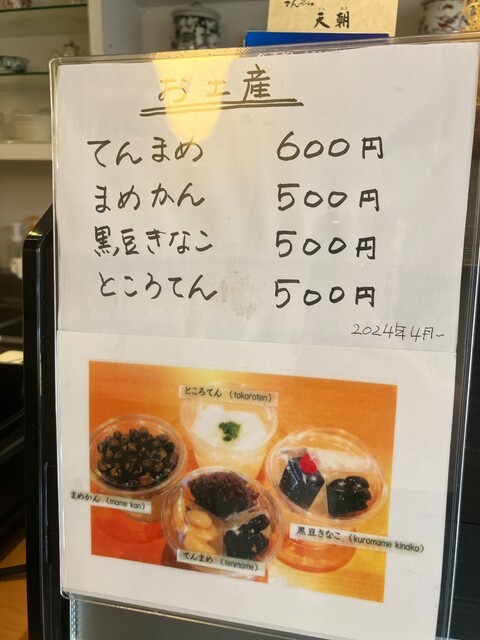 てんぷら
天朝
お土産
てんまめ 600円
まめかん 500円
黒豆きなこ 500円
ところてん 500円
2024年4月~
ところてん (tokoroten)
まめかん (mame kan)
黒豆きなこ (kuromame kinako)
てんまめ (tenmame)